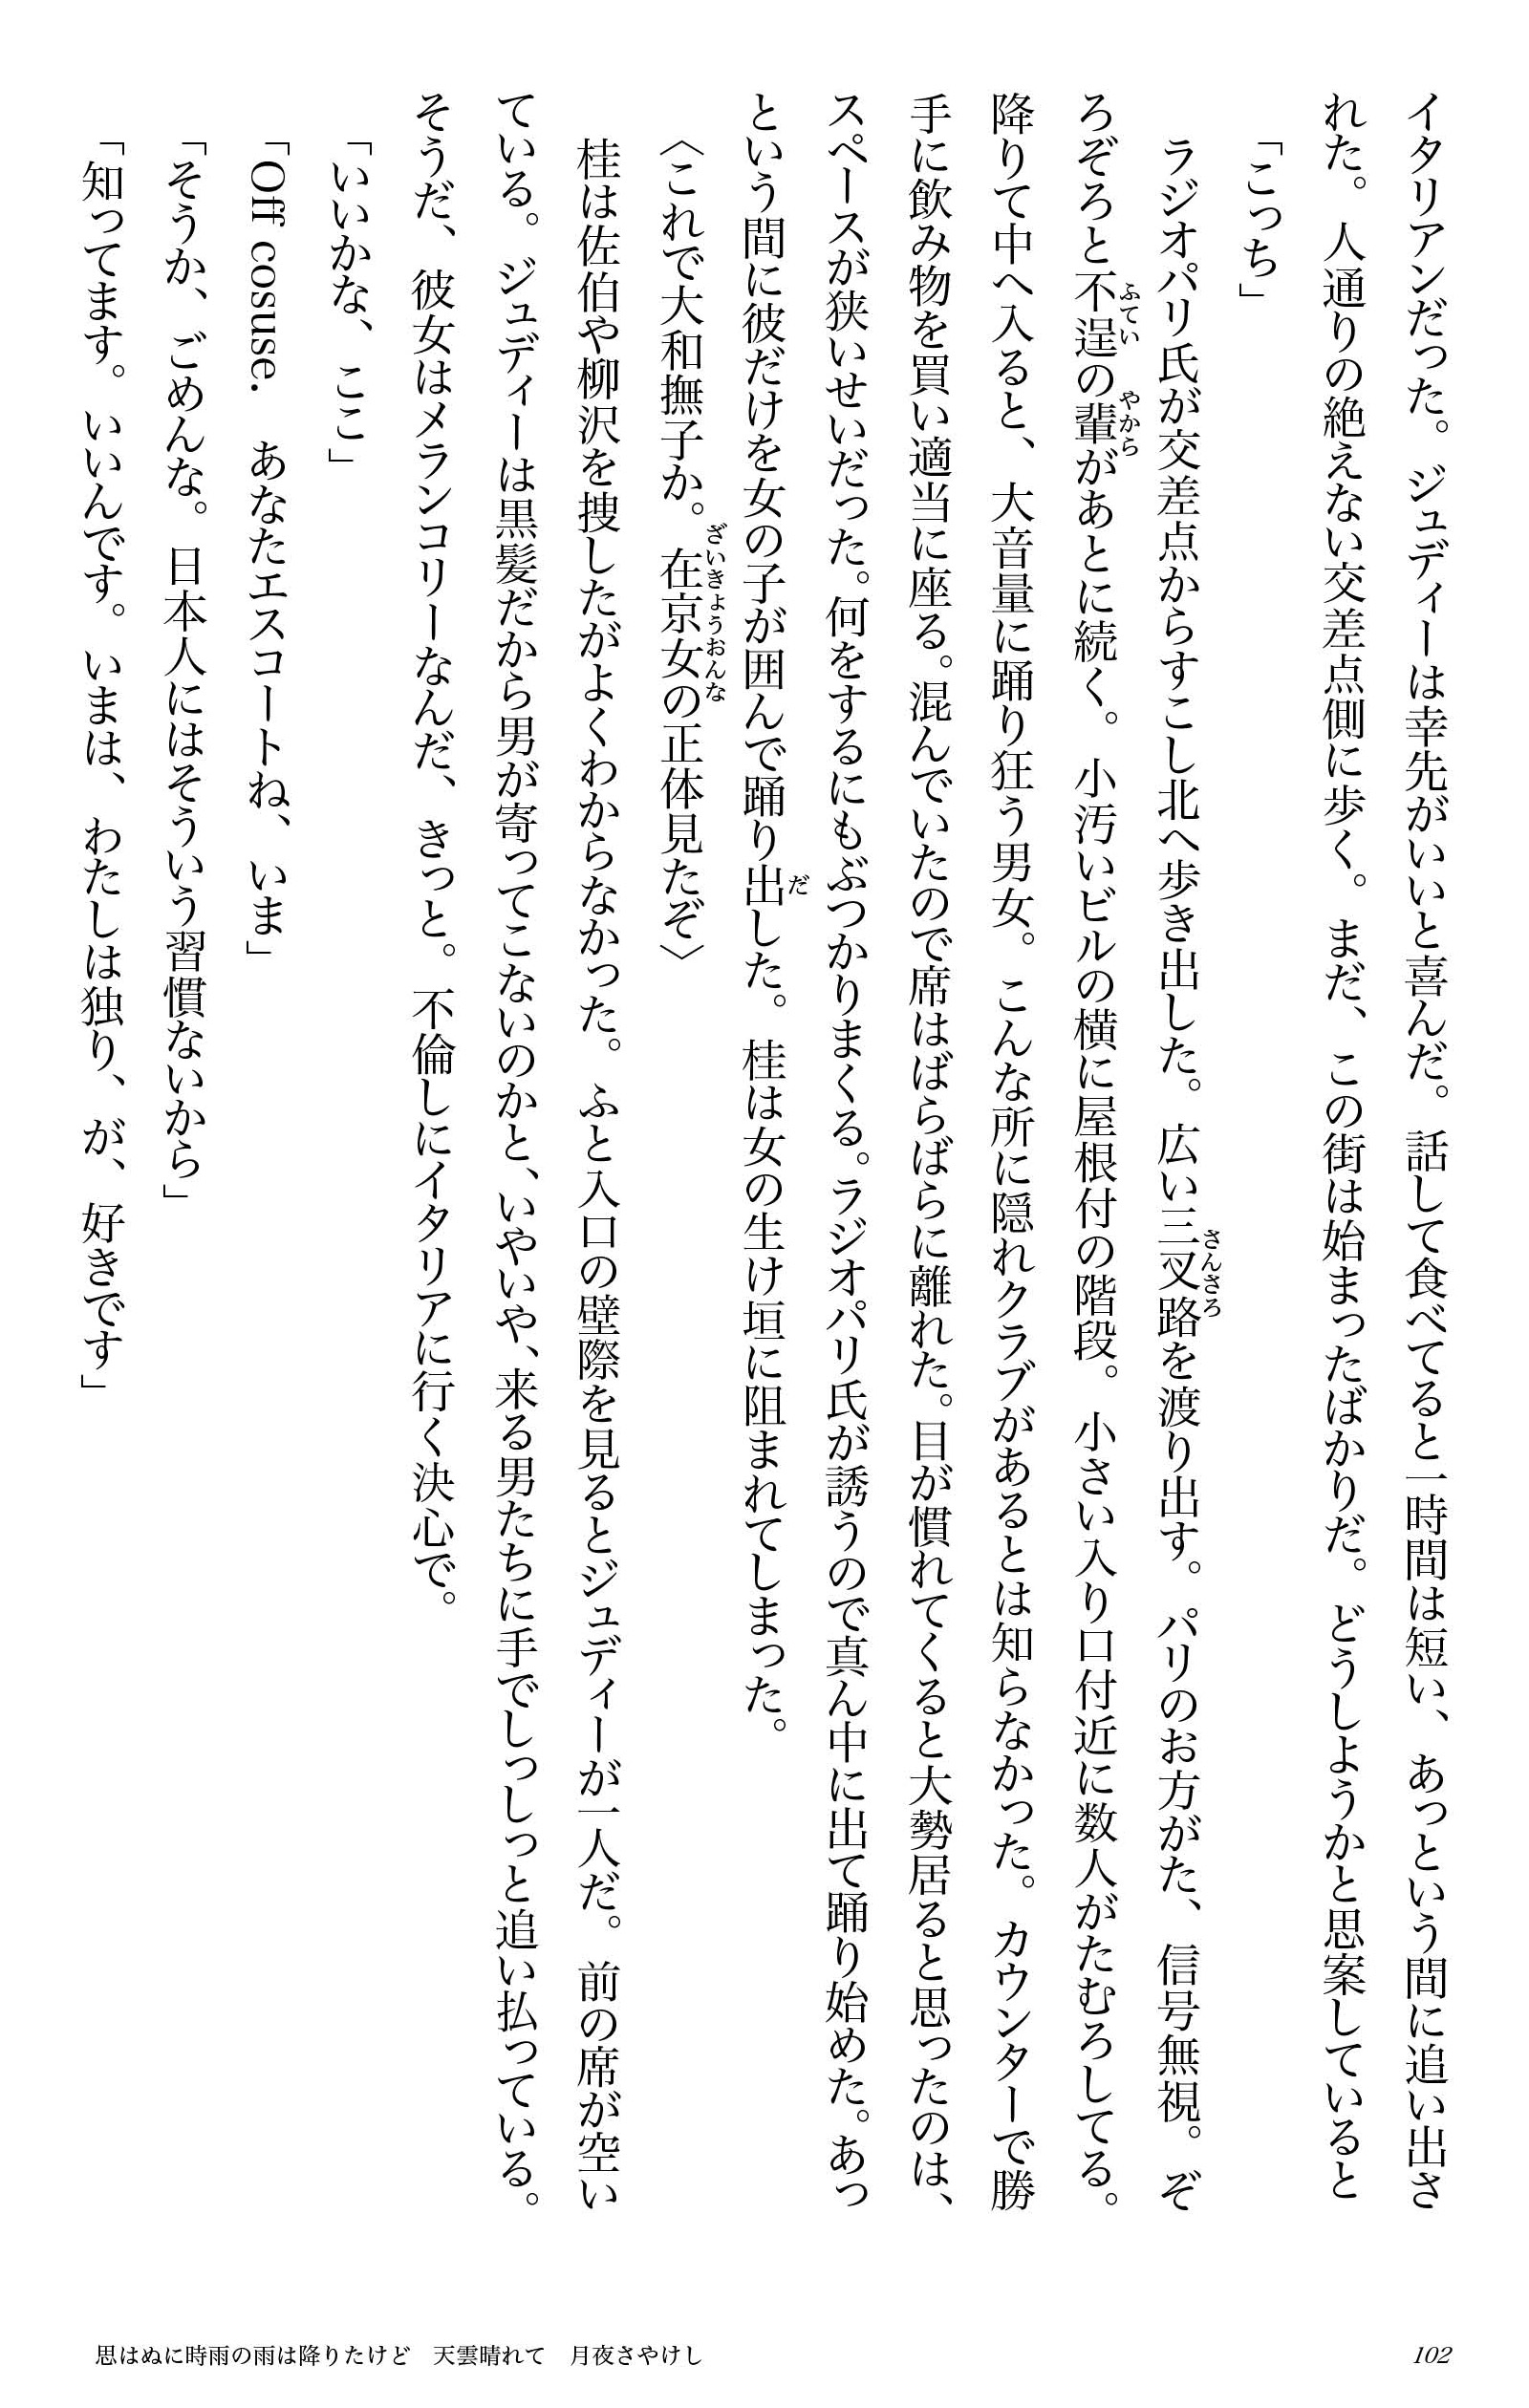 イタリアンだった。ジュディーは幸先がいいと喜んだ。話して食べてると一時間は短い、あっという間に追い出さ
れた。人通りの絶えない交差点側に歩く。まだ、この街は始まったばかりだ。どうしようかと思案していると
「こっち」
ラジオパリ氏が交差点からすこし北へ歩き出した。広い三叉路を渡り出す。パリのお方がた、信号無視。ぞ
さんさろ
ろぞろと不逞の輩があとに続く。小汚いビルの横に屋根付の階段。小さい入り口付近に数人がたむろしてる。
ふてい やから
降りて中へ入ると、大音量に踊り狂う男女。こんな所に隠れクラブがあるとは知らなかった。カウンターで勝
手に飲み物を買い適当に座る。混んでいたので席はばらばらに離れた。目が慣れてくると大勢居ると思ったのは、
スペースが狭いせいだった。何をするにもぶつかりまくる。ラジオパリ氏が誘うので真ん中に出て踊り始めた。あっ
という間に彼だけを女の子が囲んで踊り出した。桂は女の生け垣に阻まれてしまった。
だ
〈これで大和撫子か。在京女の正体見たぞ〉
ざいきょうおんな
桂は佐伯や柳沢を捜したがよくわからなかった。ふと入口の壁際を見るとジュディーが一人だ。前の席が空い
ている。ジュディーは黒髪だから男が寄ってこないのかと、いやいや、来る男たちに手でしっしっと追い払っている。
そうだ、彼女はメランコリーなんだ、きっと。不倫しにイタリアに行く決心で。
「いいかな、ここ」
「Off cosuse. あなたエスコートね、いま」
「そうか、ごめんな。日本人にはそういう習慣ないから」
「知ってます。いいんです。いまは、わたしは独り、が、好きです」
思はぬに時雨の雨は降りたけど 天雲晴れて 月夜さやけし
102